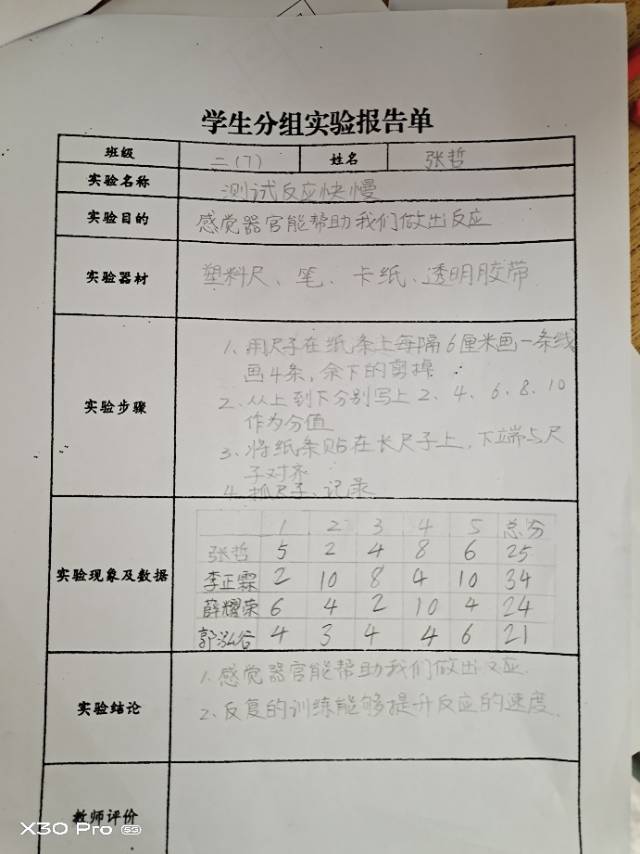 学生分组实验报告单
班级 二(7) 姓名 张哲
实验名称 测试反应快慢
实验目的 感觉器官能帮助我们做出反应
实验器材 塑料尺、笔、卡纸、透明胶带
实验步骤
1、用尺子在纸条上每隔6厘米画一条线
画4条,余下的剪掉.
2、从上到下分别写上2、4、6、8、10
作为分值
3、将纸条贴在长尺子上,下端与尺
子对齐
4、抓尺子、记录
实验现象及数据
1 2 3 4 5 总分
张哲 5 2 4 8 6 25
李正霖 2 10 8 4 10 34
薛耀荣 6 4 2 10 4 24
郭泓谷 4 3 4 4 6 21
实验结论
1、感觉器官能帮助我们做出反应.
2、反复的训练能够提升反应的速度.
教师评价
X30 Pro 5G